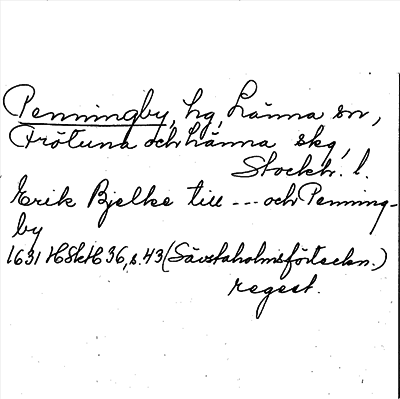 Penningby, hg, Länna sn,
Frötuna och Länna skg,
Stockh. l.
Erik Bjelke till --- och Penning-
by
1631 HSH 36, s. 43 (Säfstaholmsförteckn.)
regest.